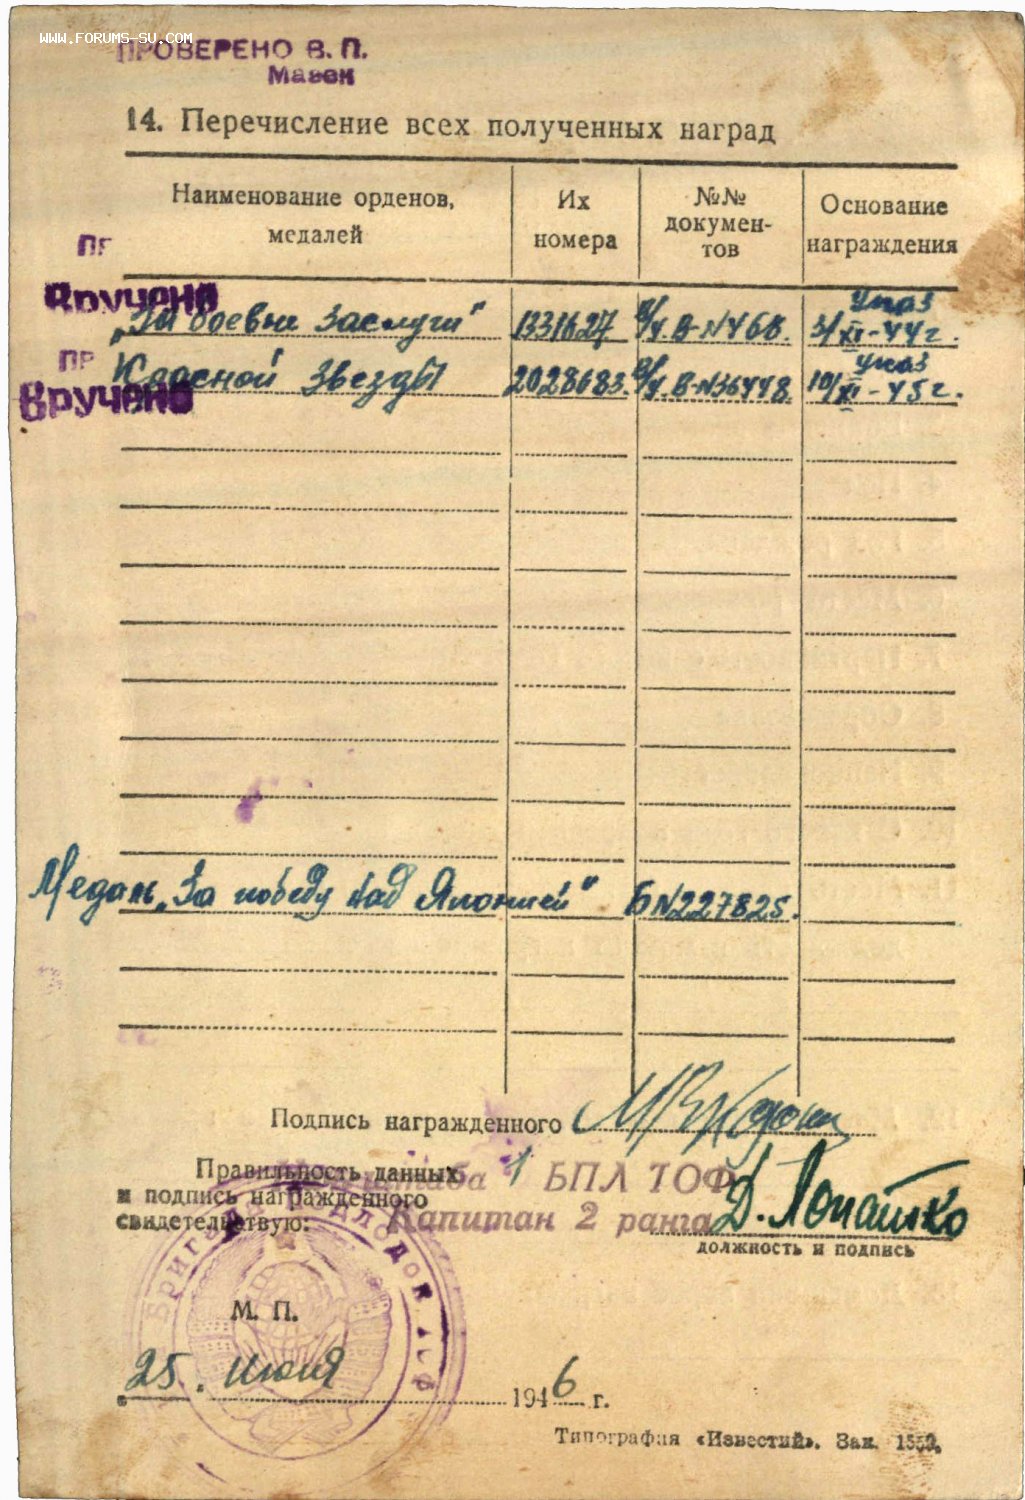 WWW.FORUMS-SU.COM
ПРОВЕРЕНО В. П.
14. Перечисление всех полученных наград
Наименование орденов, медалей
Их номера
№№ докумен-
тов
Основание награждения
ПР
Вручено
„За боевые заслуги" 1331627 В-№ 468. Указ 3/XI-44г.
ПР
Вручено
Красной Звезды 2028683. В-№36448. Указ 10/XI-45г.
Медаль „За победу над Японией" Б№227825.
Подпись награжденного
Правильность данных
и подпись награжденного
свидетельствую:
штаба 1 БПЛ ТОФ
Капитан 2 ранга Д. Лопатко
должность и подпись
Бригада подлодок ТОФ
М. П.
25. Июля 1946 г.
Типография «Известий». Зак.